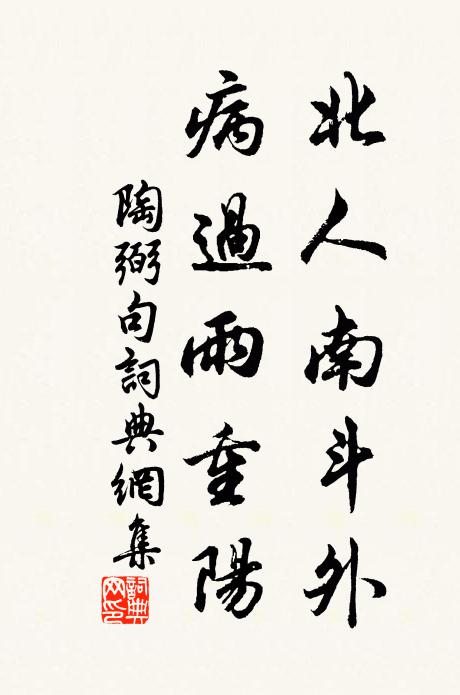 北人南斗外
病過雨重陽
陶弼句詞典網集
詞典網印